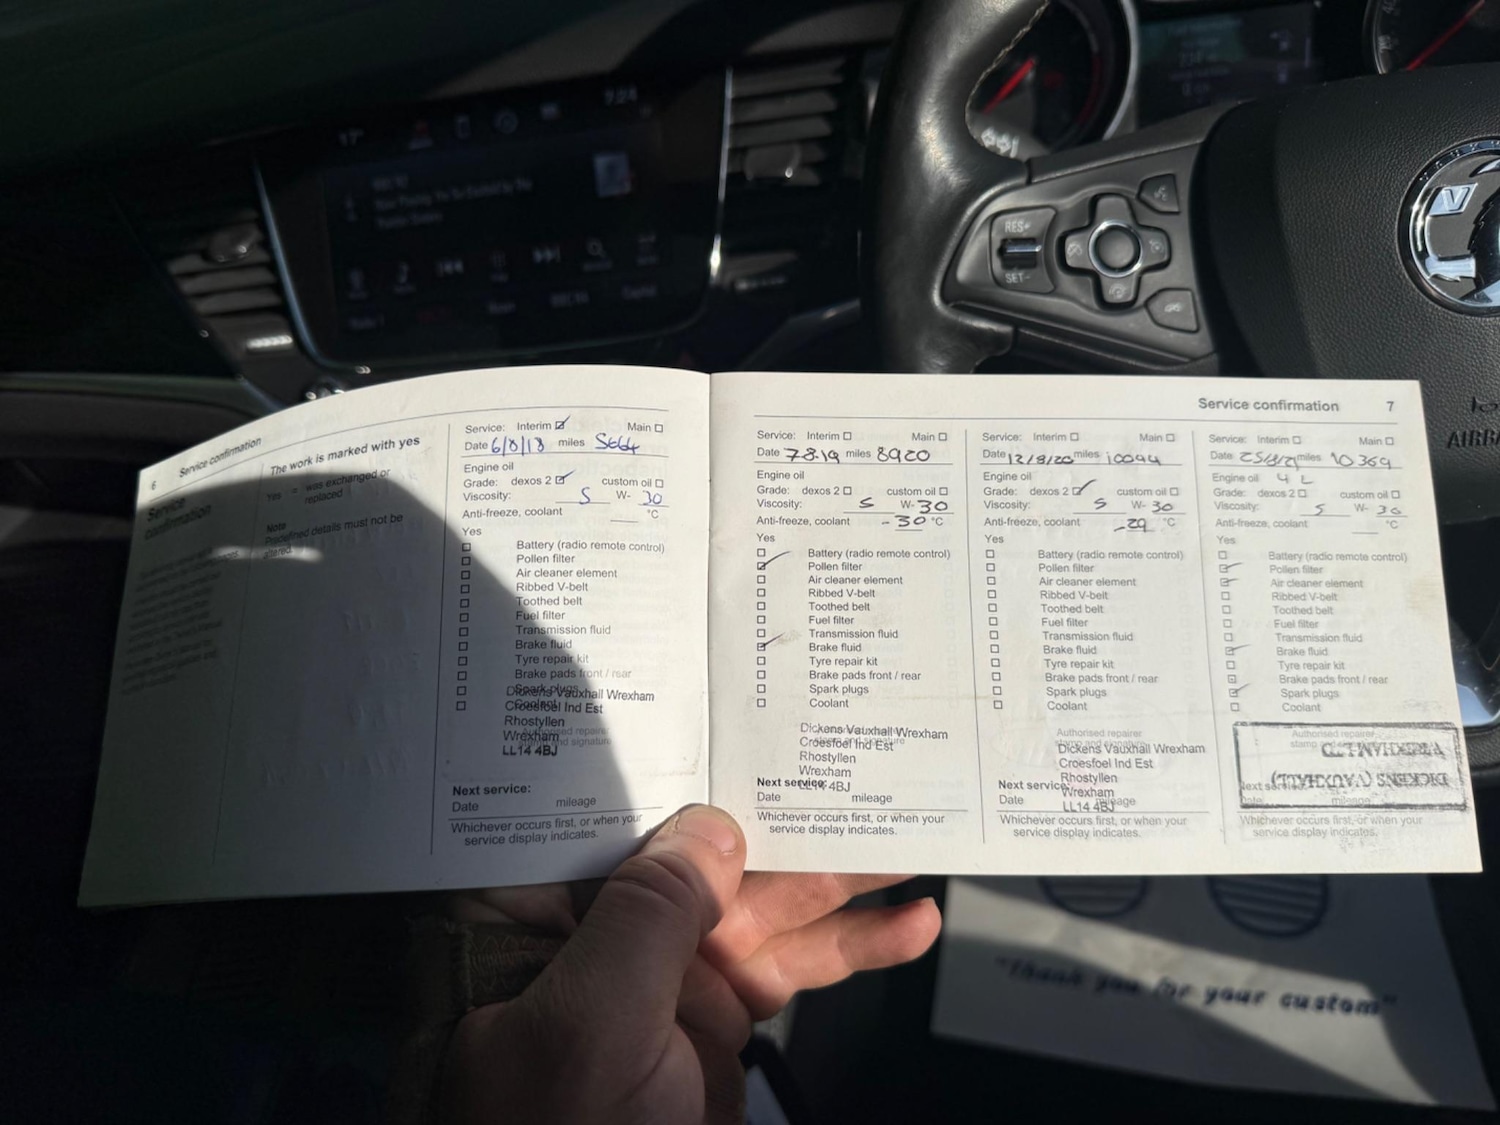 17°
7:24
RES+
SET-
V
AIRBA
6
Service confirmation
Service
confirmation
The work is marked with yes
Yes = was exchanged or
replaced
Note
Predefined details must not be
altered.
Service: Interim ☑ Main ☐
Date 6/8/18 miles 5664
Engine oil
Grade: dexos 2 ☑ custom oil ☐
Viscosity: 5 W- 30
Anti-freeze, coolant °C
Yes
☐ Battery (radio remote control)
☐ Pollen filter
☐ Air cleaner element
☐ Ribbed V-belt
☐ Toothed belt
☐ Fuel filter
☐ Transmission fluid
☐ Brake fluid
☐ Tyre repair kit
☐ Brake pads front / rear
☐ Spark plugs
☐ Coolant
Dickens Vauxhall Wrexham
Croesfoel Ind Est
Rhostyllen
Wrexham
LL14 4BJ
Authorised repairer
stamp and signature
Next service:
Date mileage
Whichever occurs first, or when your
service display indicates.
Service confirmation 7
Service: Interim ☐ Main ☐
Date 7.8.19 miles 8920
Engine oil
Grade: dexos 2 ☐ custom oil ☐
Viscosity: 5 W- 30
Anti-freeze, coolant -30 °C
Yes
☐ Battery (radio remote control)
☑ Pollen filter
☐ Air cleaner element
☐ Ribbed V-belt
☐ Toothed belt
☐ Fuel filter
☐ Transmission fluid
☑ Brake fluid
☐ Tyre repair kit
☐ Brake pads front / rear
☐ Spark plugs
☐ Coolant
Dickens Vauxhall Wrexham
Croesfoel Ind Est
Rhostyllen
Wrexham
LL14 4BJ
Next service:
Date mileage
Whichever occurs first, or when your
service display indicates.
Service: Interim ☐ Main ☐
Date 12/8/20 miles 10044
Engine oil
Grade: dexos 2 ☑ custom oil ☐
Viscosity: 5 W- 30
Anti-freeze, coolant -29 °C
Yes
☐ Battery (radio remote control)
☐ Pollen filter
☐ Air cleaner element
☐ Ribbed V-belt
☐ Toothed belt
☐ Fuel filter
☐ Transmission fluid
☐ Brake fluid
☐ Tyre repair kit
☐ Brake pads front / rear
☐ Spark plugs
☐ Coolant
Authorised repairer
stamp and signature
Dickens Vauxhall Wrexham
Croesfoel Ind Est
Rhostyllen
Wrexham
LL14 4BJ
Next service:
Date mileage
Whichever occurs first, or when your
service display indicates.
Service: Interim ☐ Main ☐
Date 25/8/21 miles 10369
Engine oil 4 L
Grade: dexos 2 ☐ custom oil ☐
Viscosity: 5 W- 30
Anti-freeze, coolant °C
Yes
☐ Battery (radio remote control)
☑ Pollen filter
☑ Air cleaner element
☐ Ribbed V-belt
☐ Toothed belt
☐ Fuel filter
☐ Transmission fluid
☑ Brake fluid
☐ Tyre repair kit
☐ Brake pads front / rear
☑ Spark plugs
☐ Coolant
Authorised repairer
DICKENS (VAUXHALL)
WREXHAM LTD
Next service:
Date mileage
Whichever occurs first, or when your
service display indicates.
"Thank you for your custom"